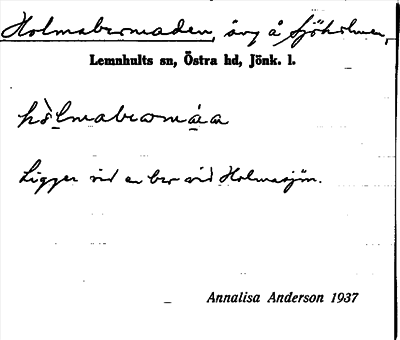 Holmabromaden, äng å Sjöholmen,
Lemnhults sn, Östra hd, Jönk. l.
hòlmabromáa
Ligger vid en bro vid Holmasjön.
Annalisa Anderson 1937